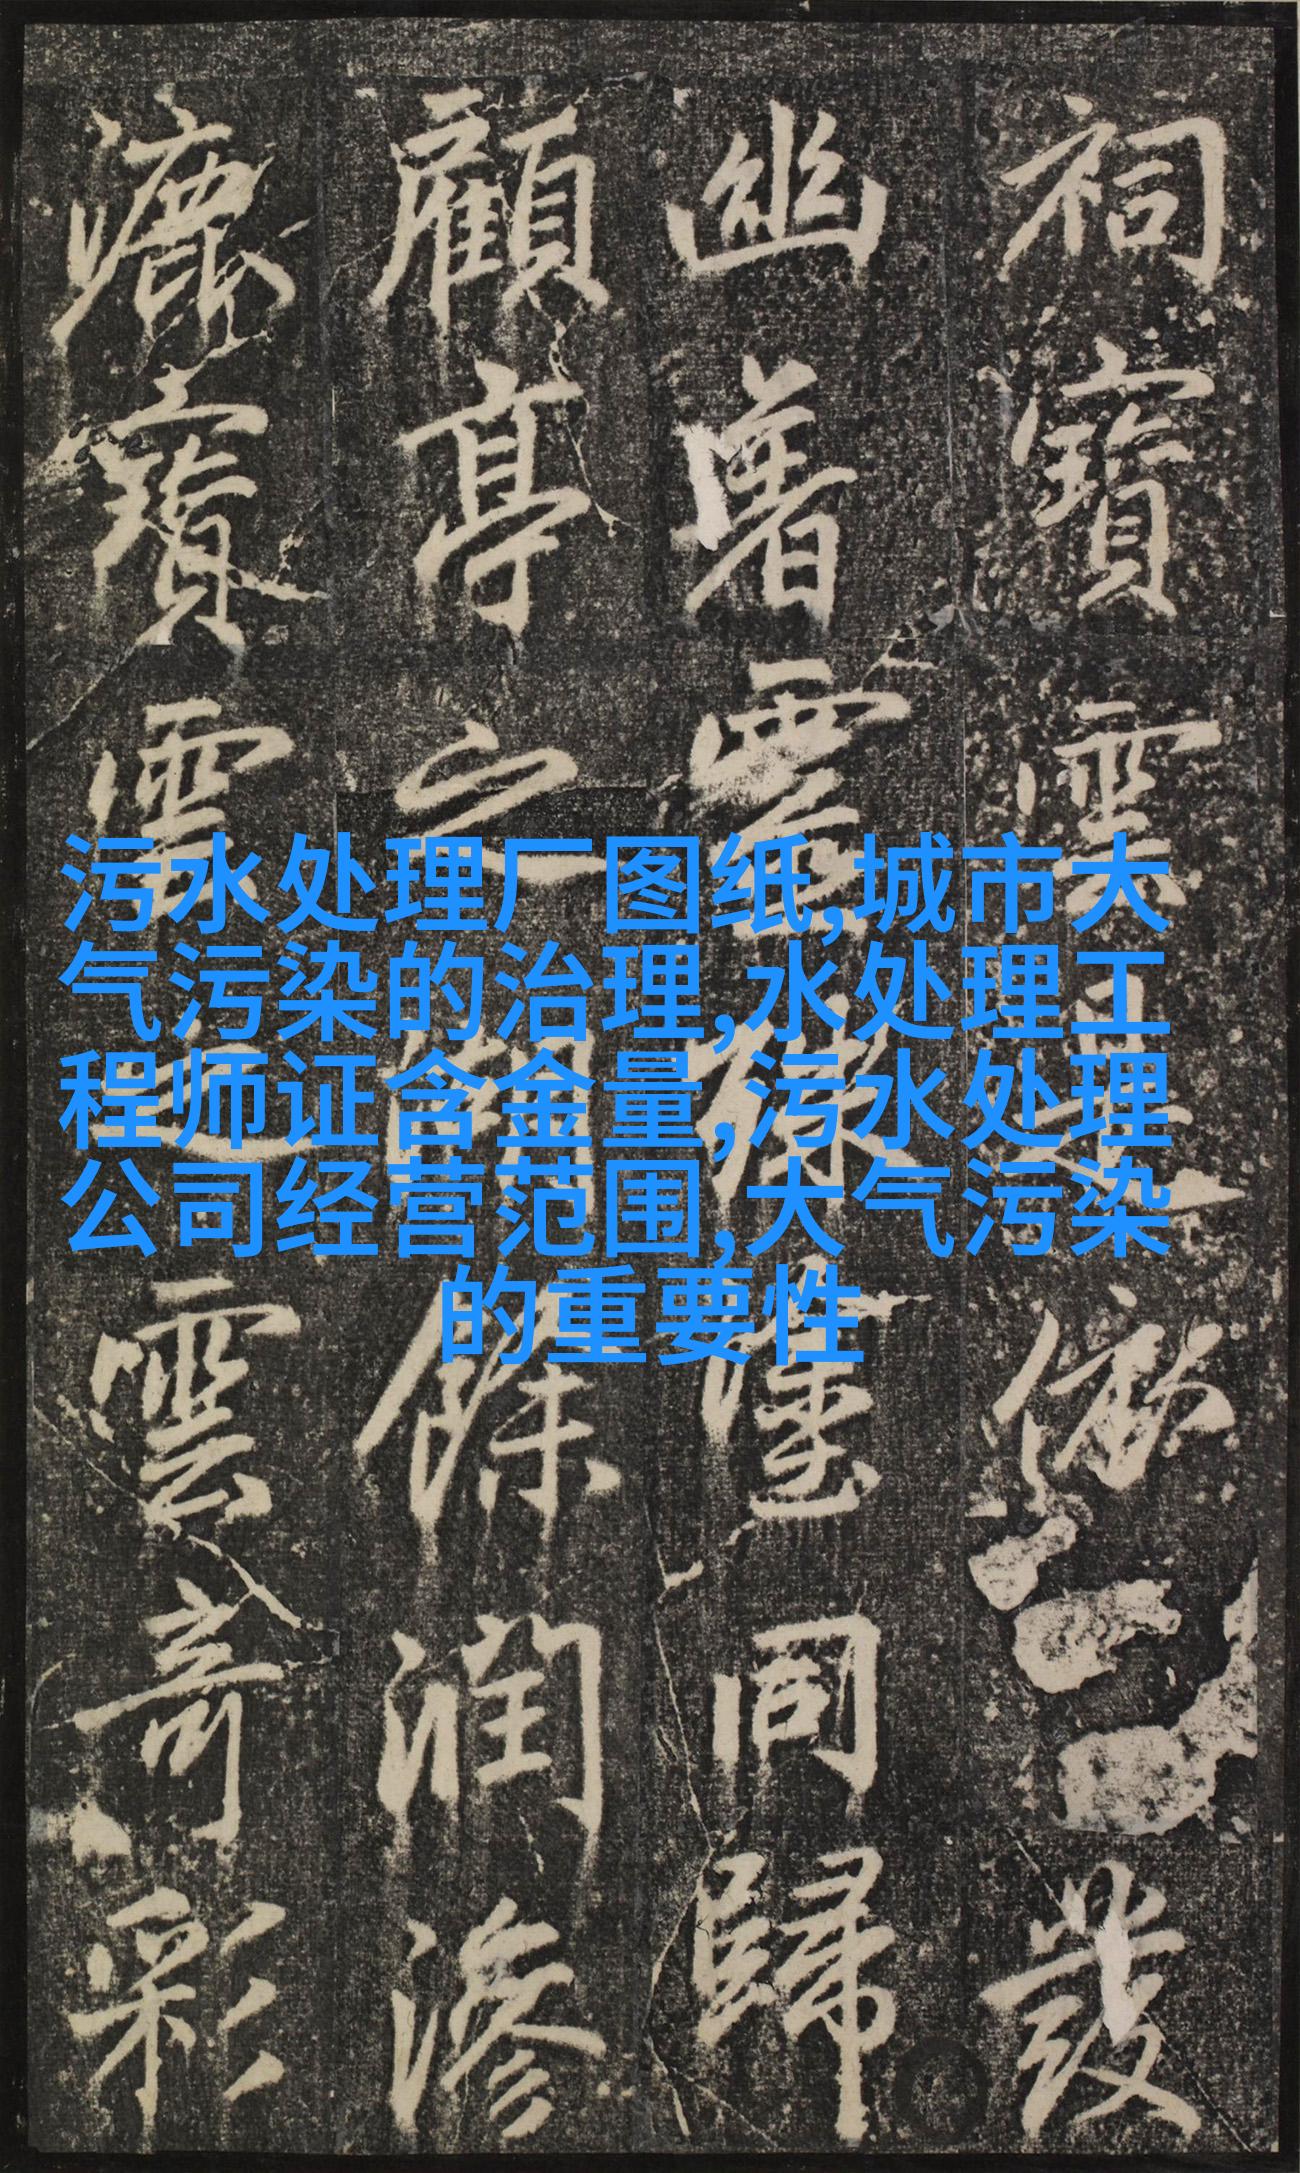 污水处理厂图纸,城市大
气污染的治理,水处理工
程师证含金量,污水处理
公司经营范围,大气污染
的重要性
祠寶雲發
幽署靈同歸
顧亭之餘潤滲
漉寶雲奇彩